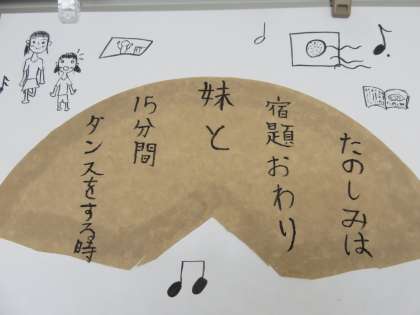 たのしみは
宿題おわり
妹と
15分間
ダンスをする時